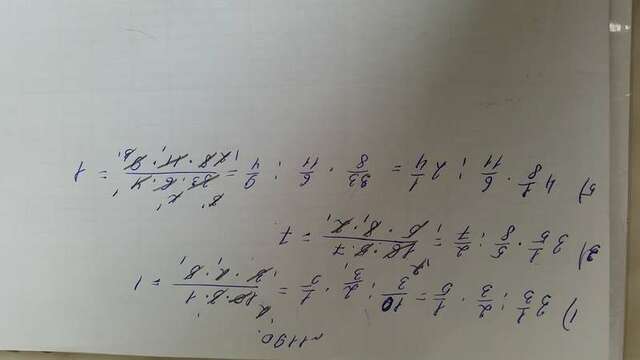 №1190.
1) 3 1/3 : 2/3 · 1/5 = 10/3 : 2/3 · 1/5 = 10·3·1/3·2·5 = 1
3) 3 1/5 · 5/8 : 2/7 = 16·5·7/5·8·2 = 7.
5) 4 1/8 · 6/11 : 2 1/4 = 33/8 · 6/11 : 9/4 = 33·6·4/8·11·9 = 1